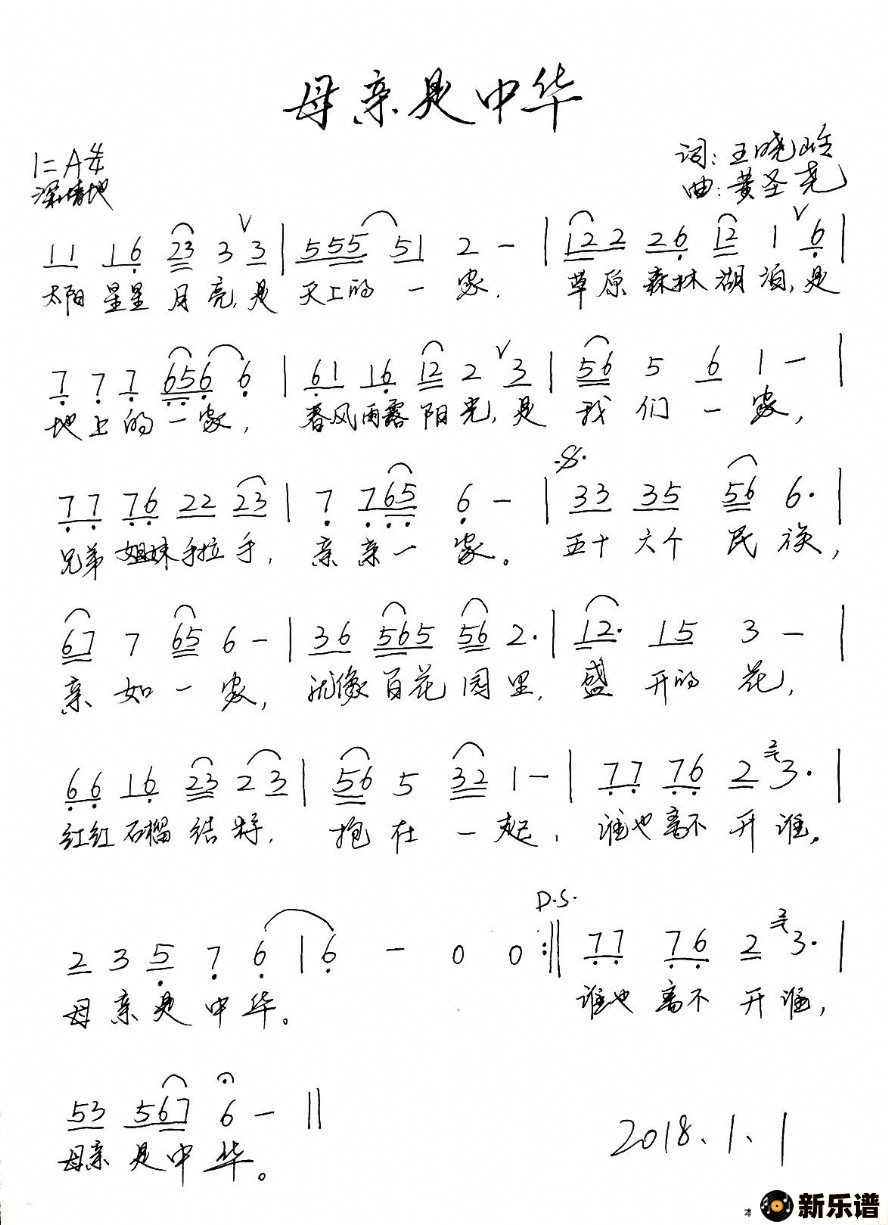 母亲是中华
1=A 4/4
深情地
词:王晓岭
曲:黄圣尧
11 16 23 3 3 | 555 51 2 - | 122 26 12 1 6 |
太阳 星星 月亮,是 天上的 一 家, 草原 森林 湖泊,是
7 7 7 656 6 | 61 16 12 2 3 | 56 5 6 1 - |
地上的一家, 春风雨露阳光,是 我 们 一 家,
77 76 22 23 | 7 765 6 - | 33 35 56 6. |
兄弟 姐妹手拉手, 亲亲一 家。 五十 六个 民 族,
67 7 65 6 - | 36 565 56 2. | 12. 15 3 - |
亲 如 一 家, 就像百花园里, 盛 开的 花,
66 16 23 23 | 56 5 32 1 - | 77 76 2 3. |
红红石榴结籽, 抱在一起, 谁也离不 开谁。
D.S.
2 3 5 7 6 | 6 - 0 0 :|| 77 76 2 3. |
母亲是中华。 谁也 离不 开 谁,
53 567 6 - ||
母亲是中华。
2018.1.1
新乐谱